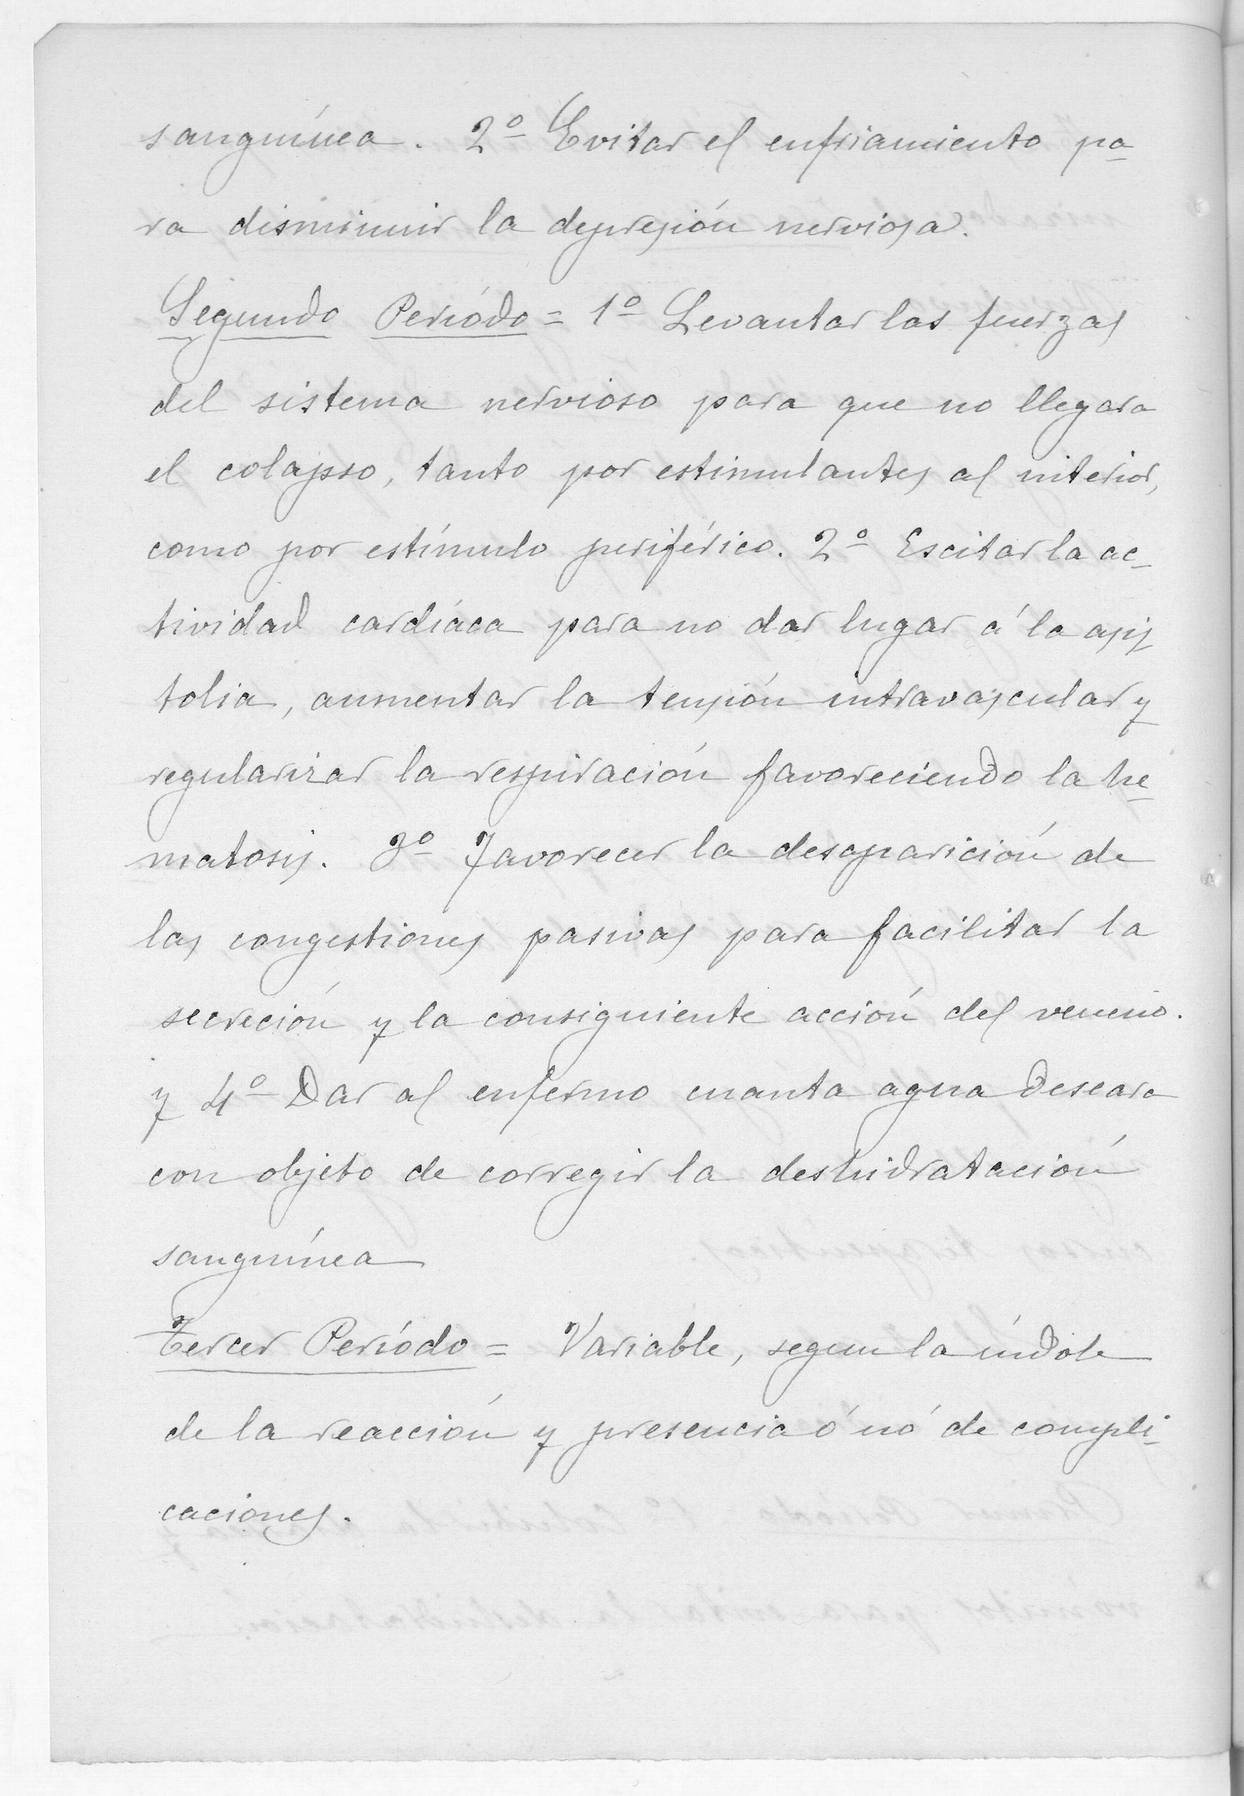 sanguínea. 2º Evitar el enfriamiento pa-
ra disminuir la depresión nerviosa.
Segundo Periódo = 1º Levantar las fuerzas
del sistema nervioso para que no llegara
el colapso, tanto por estimulantes al interior,
como por estímulo periférico. 2º Escitar la ac-
tividad cardíaca para no dar lugar á la asis-
tolia, aumentar la tensión intravascular y
regularizar la respiración favoreciendo la he-
matosis. 3º Favorecer la desaparición de
las congestiones pasivas para facilitar la
secreción y la consiguiente acción del veneno.
y 4º Dar al enfermo cuanta agua deseara
con objeto de corregir la deshidratación
sanguínea
Tercer Periódo = Variable, segun la índole
de la reacción y presencia ó nó de compli-
caciones.